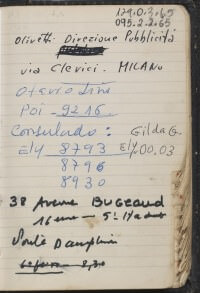 129.0.3.65
095.2.2.65
Olivetti Direzione Pubblicità
via Clerici. MILANO
Poi 9216
Consulado: Gilda G.
Ely 8793 Ely.00.03
8796
8930
38 Avenue BUGEAUD
16 - 5
Porte Dauphine
8,30